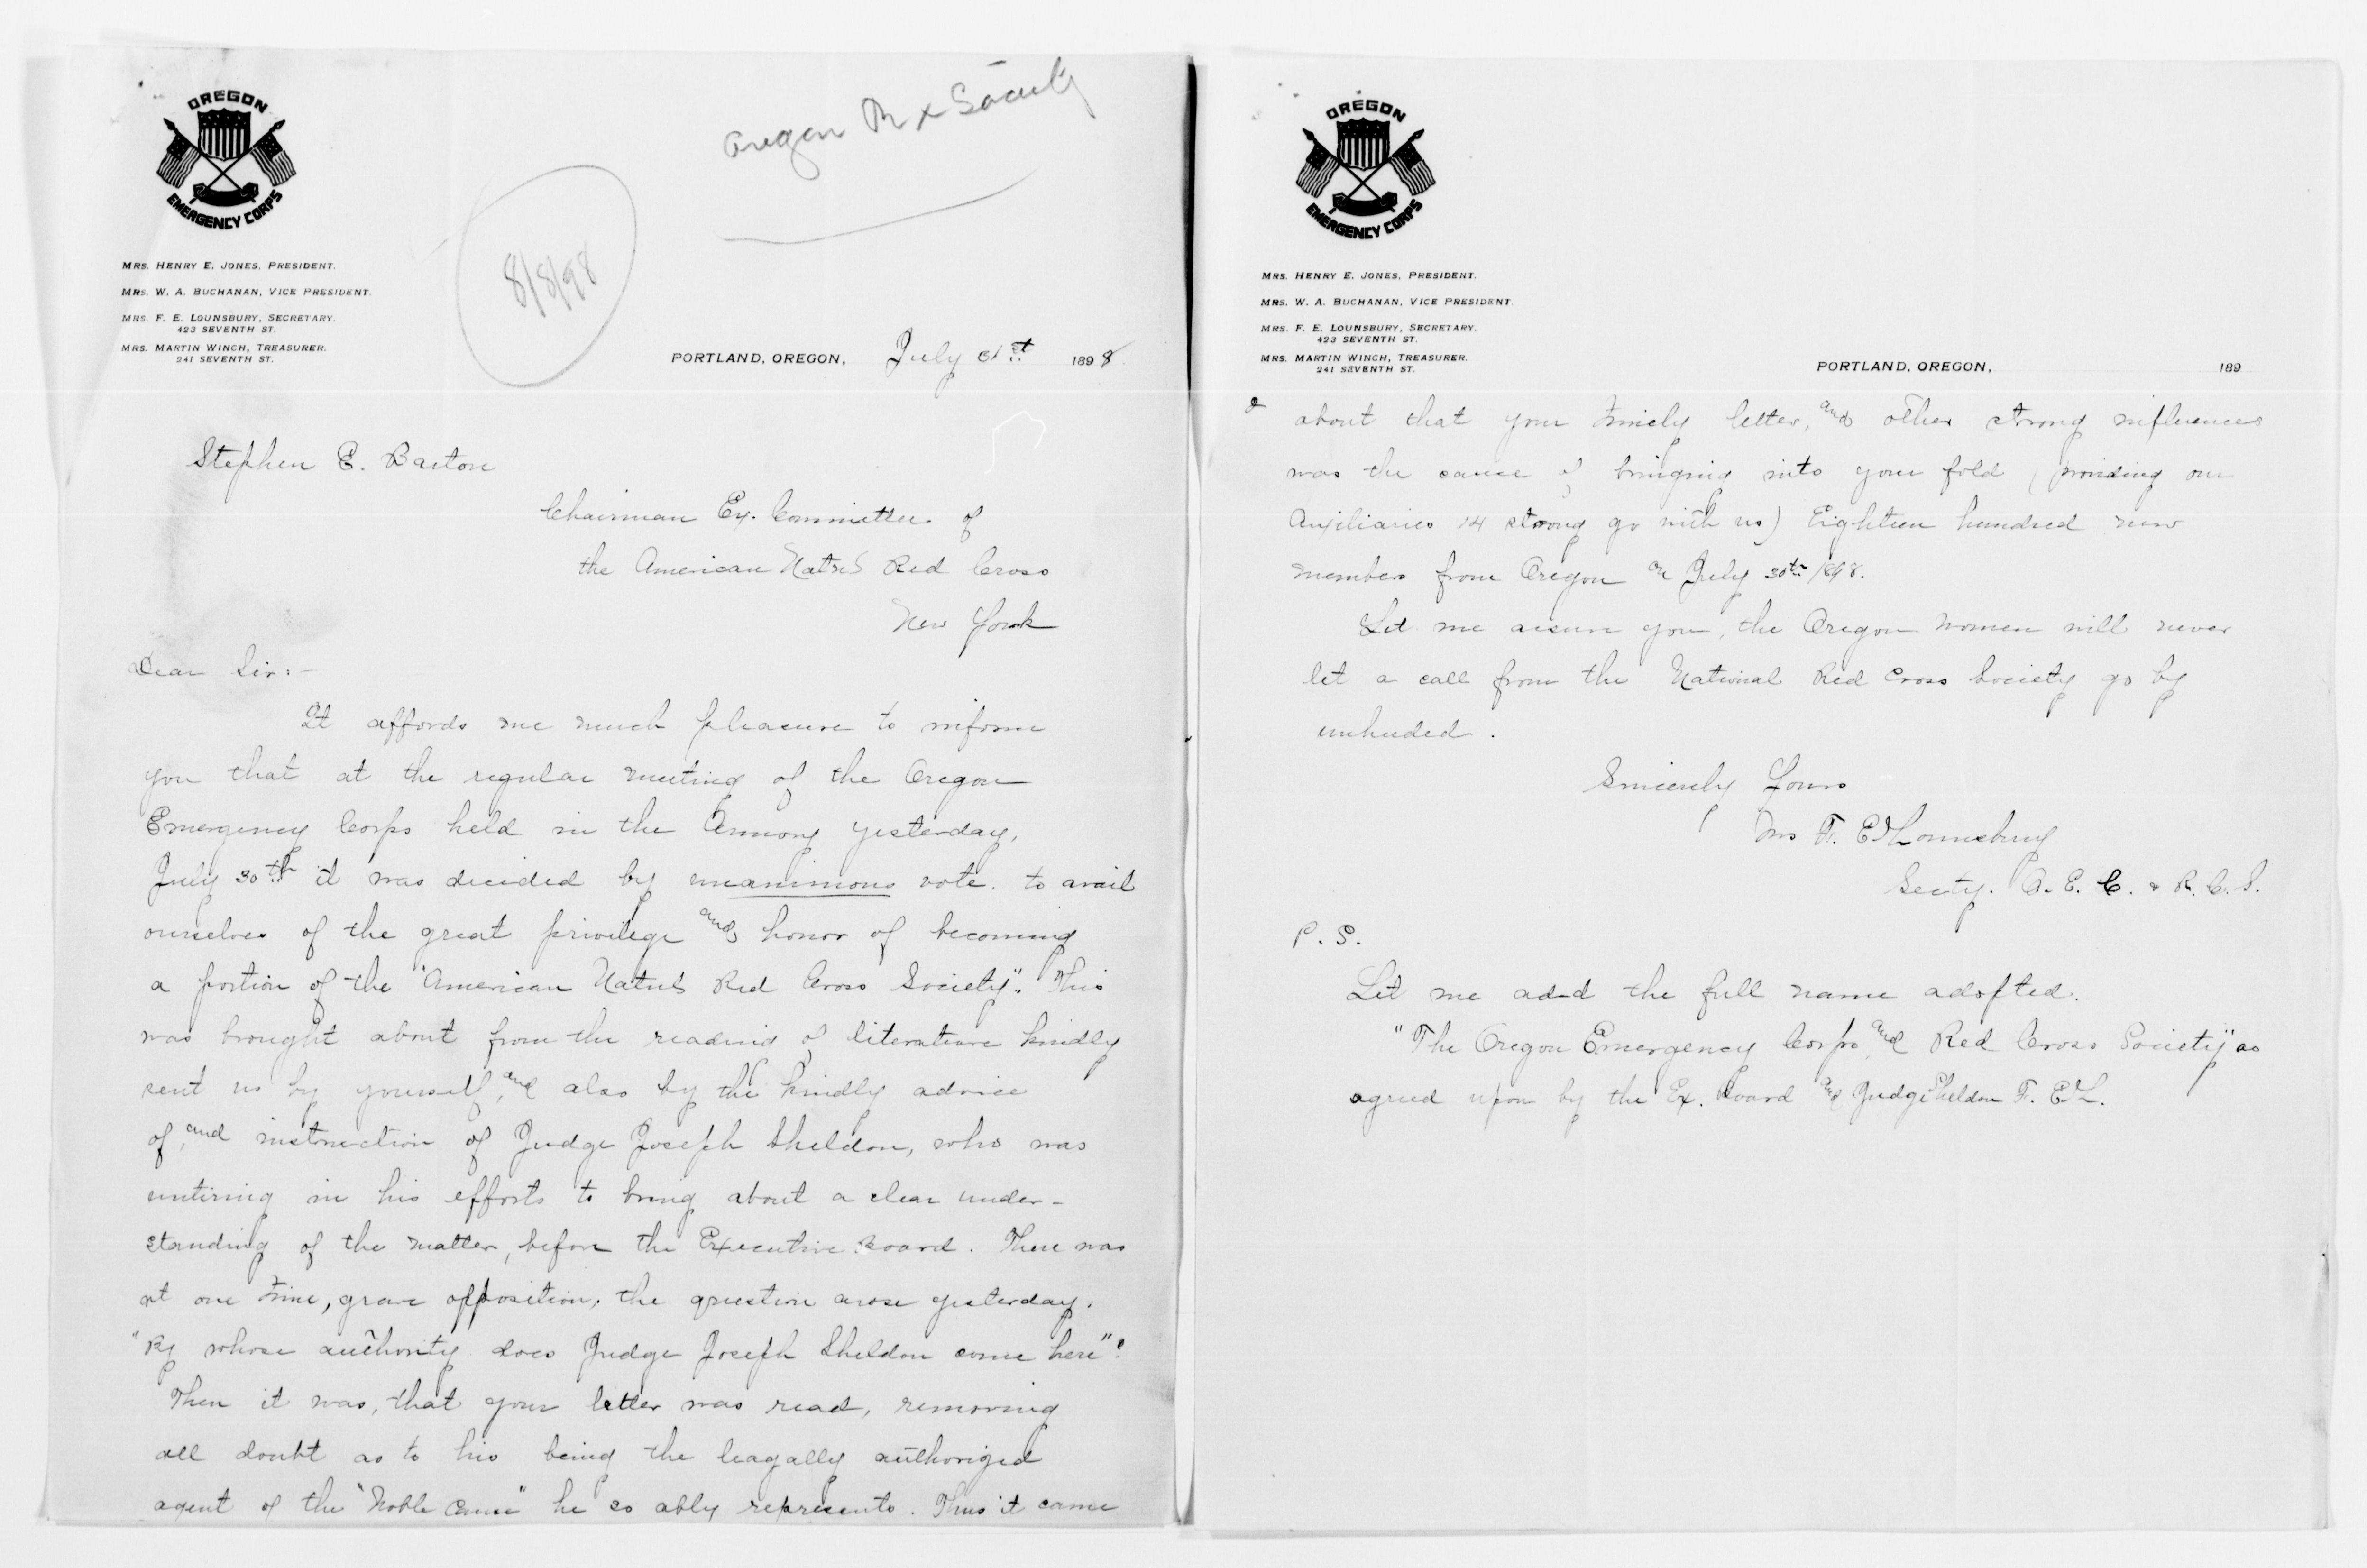 OREGON
EMERGENCY CORPS
Oregon R x Society
8/8/98
MRS. HENRY E. JONES, PRESIDENT.
MRS. W. A. BUCHANAN, VICE PRESIDENT.
MRS. F. E. LOUNSBURY, SECRETARY.
423 SEVENTH ST.
MRS. MARTIN WINCH, TREASURER.
241 SEVENTH ST.
PORTLAND, OREGON, July 31st 1898
Stephen E. Barton
Chairman Ex. Committee of
the American Nat'nl Red Cross
New York
Dear Sir:-
It affords me much pleasure to inform
you that at the regular meeting of the Oregon
Emergency Corps held in the Armory yesterday,
July 30th it was decided by unanimous vote. to avail
ourselves of the great privilege and honor of becoming
a portion of the "American Nat'nl Red Cross Society". This
was brought about from the reading of literature kindly
sent us by yourself, and also by the kindly advice
of, and instruction of Judge Joseph Sheldon, who was
untiring in his efforts to bring about a clear under-
standing of the matter, before the Executive Board. There was
at one time, grave opposition, the question arose yesterday.
"By whose authority does Judge Joseph Sheldon come here"?
Then it was, that your letter was read, removing
all doubt as to his being the leagally authorized
agent of the "Noble Cause" he so ably represents. Thus it came
OREGON
EMERGENCY CORPS
MRS. HENRY E. JONES, PRESIDENT.
MRS. W. A. BUCHANAN, VICE PRESIDENT.
MRS. F. E. LOUNSBURY, SECRETARY.
423 SEVENTH ST.
MRS. MARTIN WINCH, TREASURER.
241 SEVENTH ST.
PORTLAND, OREGON, 189
2 about that your timely letter, and other strong influences
was the cause of bringing into your fold (providing our
Auxiliaries 14 strong go with us) Eighteen hundred new
members from Oregon on July 30th 1898.
Let me assure you, the Oregon women will never
let a call from the National Red Cross Society go by
unheeded.
Sincerely Yours
Mrs F. E. Lounsbury
Secty. O. E. C. & R. C. S.
P. S.
Let me add the full name adopted.
"The Oregon Emergency Corps and Red Cross Society" as
agreed upon by the Ex. Board and Judge Sheldon F. E. L.